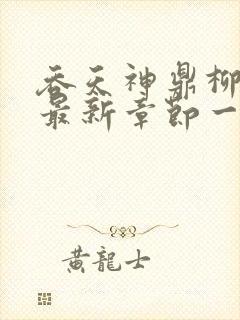 吞天神鼎柳
最新章節一
黃龍士